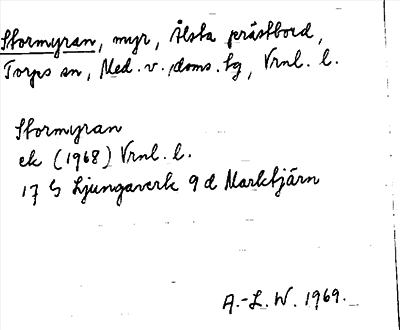 Stormyran, myr, Ålsta prästbord,
Torps sn, Med. v. doms. lg, Vrnl. l.
Stormyran
ek (1968) Vrnl. l.
17 G Ljungaverk 9 d Marktjärn
A.-L. W. 1969.